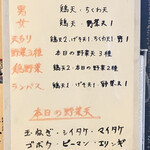 男 鶏天、ちくわ天
女 鶏天、野菜天1
天ぷら 鶏天2、げそ天1、ちくわ天1、野1
野菜3種 本日の野菜天3種
鶏野菜 鶏天2、野菜天2
ランパス 鶏天1、げそ天1、野菜天1
本日の野菜天
玉ねぎ・シイタケ・マイタケ
ゴボウ・ピーマン・エリンギ